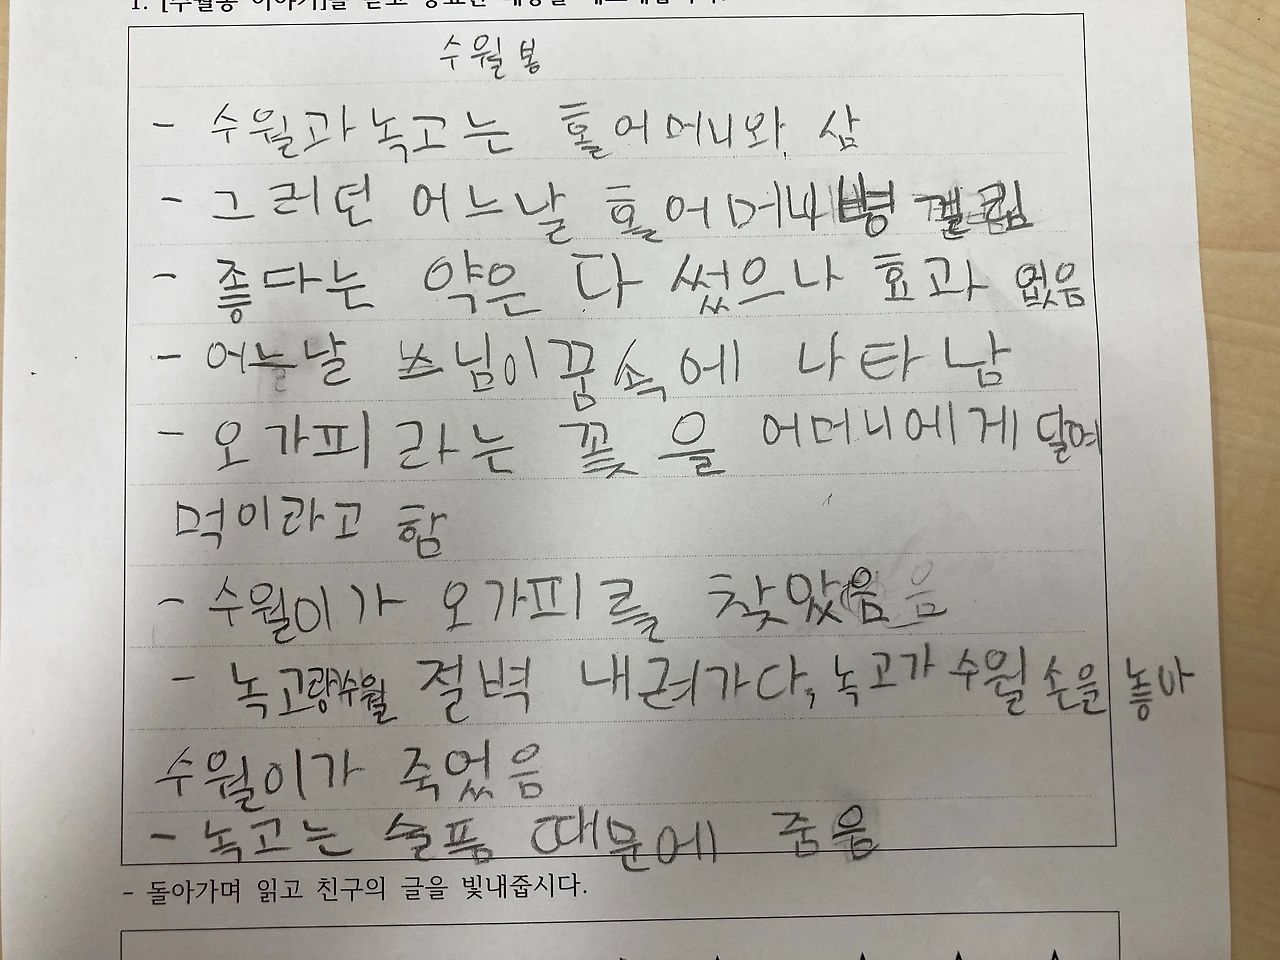 수월봉
- 수월과 녹고는 홀어머니와 삼
- 그러던 어느날 홀어머니 병 걸림
- 좋다는 약은 다 썼으나 효과 없음
- 어느날 스님이 꿈속에 나타남
- 오가피라는 꽃을 어머니에게 달여
먹이라고 함
- 수월이가 오가피를 찾았음
- 녹고랑수월 절벽 내려가다, 녹고가 수월 손을 놓아
수월이가 죽었음
- 녹고는 슬픔 때문에 죽음
- 돌아가며 읽고 친구의 글을 빛내줍시다.